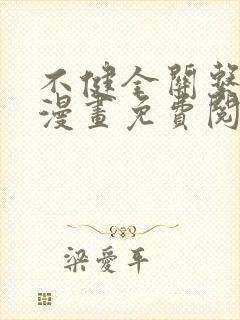 不健全關係
漫畫免費閱
梁愛平